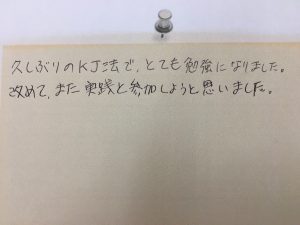 久しぶりのKJ法で、とても勉強になりました。
改めて、また実践と参加しようと思いました。